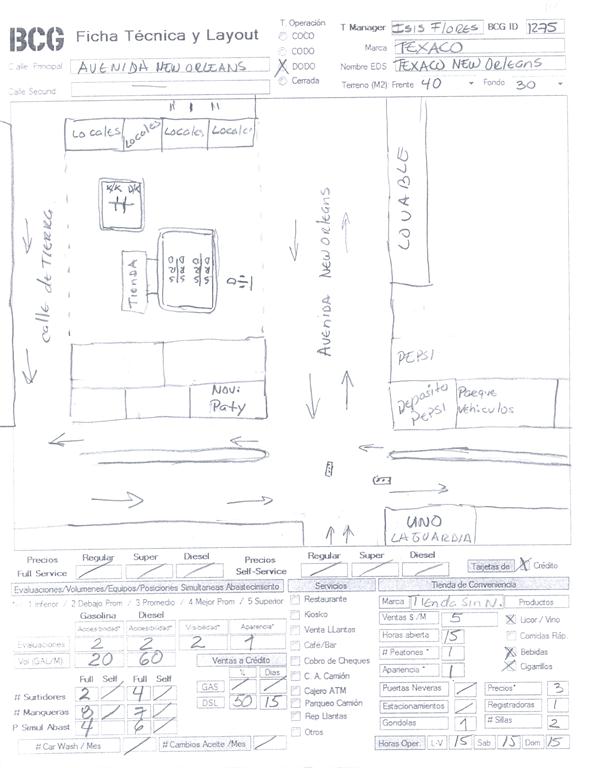 BCG Ficha Técnica y Layout
T. Operación
COCO
CODO
X DODO
Cerrada
T Manager ISIS FLORES BCG ID 1275
Marca TEXACO
Nombre EDS TEXACO NEW ORLEANS
Calle Principal AVENIDA NEW ORLEANS
Terreno (M2): Frente 40 Fondo 30
Calle Secund
Locales Locales Locales Locales
K/K D/K
calle de TIERRA
TIENDA
AVENIDA NEW ORLEANS
LOVABLE
PEPSI
Novi Paty
Deposito PEPSI
Parque Vehiculos
UNO
LA GUARDIA
Precios Regular Super Diesel
Full Service
Precios Regular Super Diesel
Self-Service
Tarjetas de X Crédito
Evaluaciones/Volumenes/Equipos/Posiciones Simultaneas Abastecimiento
1 Inferior / 2 Debajo Prom / 3 Promedio / 4 Mejor Prom / 5 Superior
Gasolina Diesel
Accesibilidad* Accesibilidad* Visibilidad* Apariencia*
Evaluaciones 2 2 2 1
Vol (GAL/M) 20 60
Ventas a Crédito
% Días
GAS
DSL 50 15
Full Self Full Self
# Surtidores 2 4
# Mangueras 8 7
P Simul Abast 4 6
# Car Wash / Mes
# Cambios Aceite /Mes
Servicios
Restaurante
Kiosko
Venta LLantas
Cafe/Bar
Cobro de Cheques
C. A. Camión
Cajero ATM
Parqueo Camión
Rep Llantas
Otros
Tienda de Conveniencia
Marca Tienda Sin N. Productos
Ventas $ /M 5 X Licor / Vino
Horas abierta 15 Comidas Ráp.
# Peatones * 1 X Bebidas
Apariencia * 1 X Cigarrillos
Puertas Neveras Precios* 3
Estacionamientos Registradoras 1
Gondolas 1 # Sillas 2
Horas Oper. L-V 15 Sab 15 Dom 15